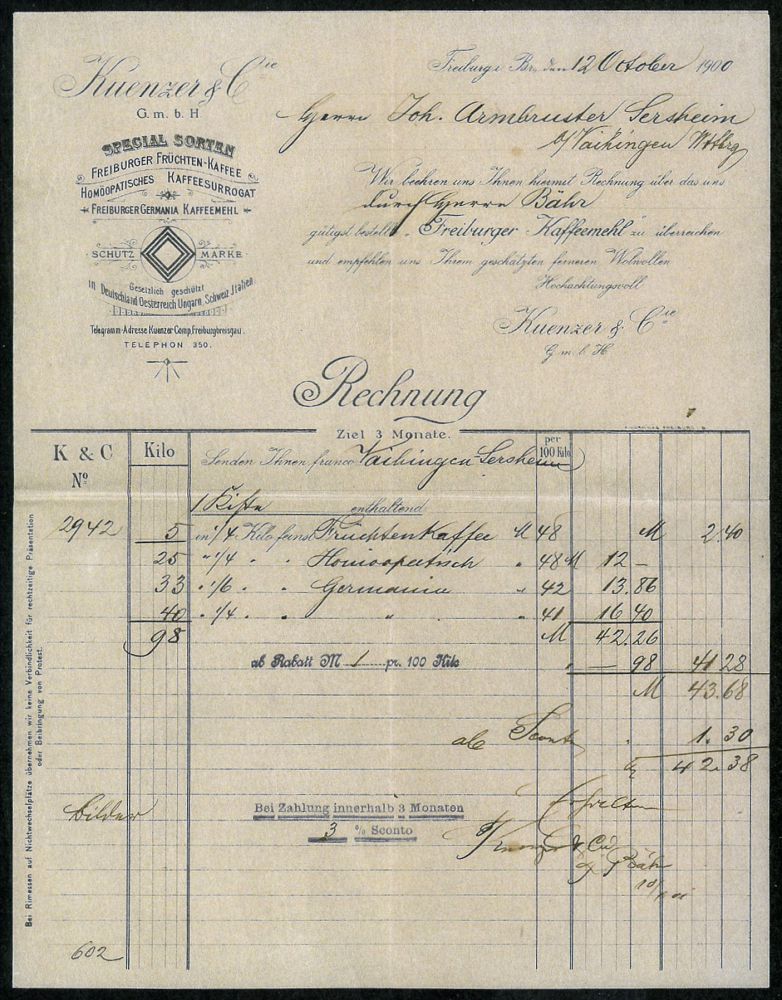 Kuenzer & Cie
G. m. b. H
SPECIAL SORTEN
FREIBURGER FRÜCHTEN-KAFFEE
HOMÖOPATISCHES KAFFEESURROGAT
FREIBURGER GERMANIA KAFFEMEHL
SCHUTZ MARKE
Gesetzlich geschützt
in Deutschland Oesterreich Ungarn, Schweiz Italien
Telegramm-Adresse Kuenzer Comp. Freiburgbreisgau.
TELEPHON 350.
Freiburg i. Br., den 12 October 1900
Herrn Joh. Armbruster Sersheim
b/Vaihingen Wttbrg
Wir beehren uns Ihnen hiermit Rechnung über das uns
durch Herrn Bähr
gütigst bestellte „Freiburger Kaffeemehl" zu überreichen
und empfehlen uns Ihrem geschätzten ferneren Wolwollen
Hochachtungsvoll
Kuenzer & Cie
G. m. b. H
Rechnung
Ziel 3 Monate.
K & C No Kilo per 100 Kilo
Senden Ihnen franco Vaihingen-Sersheim
1 Kiste enthaltend
2942 5 in 1/4 Kilo feinst Früchten Kaffee M 48 M 2.40
25 " 1/4 " " Homöopatisch " 48 M 12 —
33 " 1/6 " " Germania " 42 13.86
40 " 1/4 " " " " 41 16 40
98 M 42.26
ab Rabatt M 1 pr. 100 Kilo " — 98 41 28
M 43.68
ab Sconto " 1.30
42.38
Bilder
Bei Zahlung innerhalb 3 Monaten
3 % Sconto
Erhalten
p/ Kuenzer & Cie
Bähr
602
Bei Rimessen auf Nichtwechselplätze übernehmen wir keine Verbindlichkeit für rechtzeitige Präsentation
oder Beibringung von Protest.